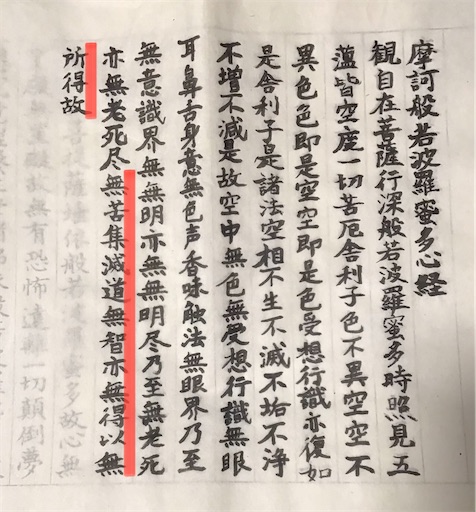 摩訶般若波羅蜜多心経
観自在菩薩行深般若波羅蜜多時照見五
薀皆空度一切苦厄舎利子色不異空空不
異色色即是空空即是色受想行識亦復如
是舎利子是諸法空相不生不滅不垢不浄
不増不減是故空中無色無受想行識無眼
耳鼻舌身意無色声香味触法無眼界乃至
無意識界無無明亦無無明尽乃至無老死
亦無老死尽無苦集滅道無智亦無得以無
所得故
薩埵依般若蜜多故心無
無有恐怖遠離一切顛倒夢